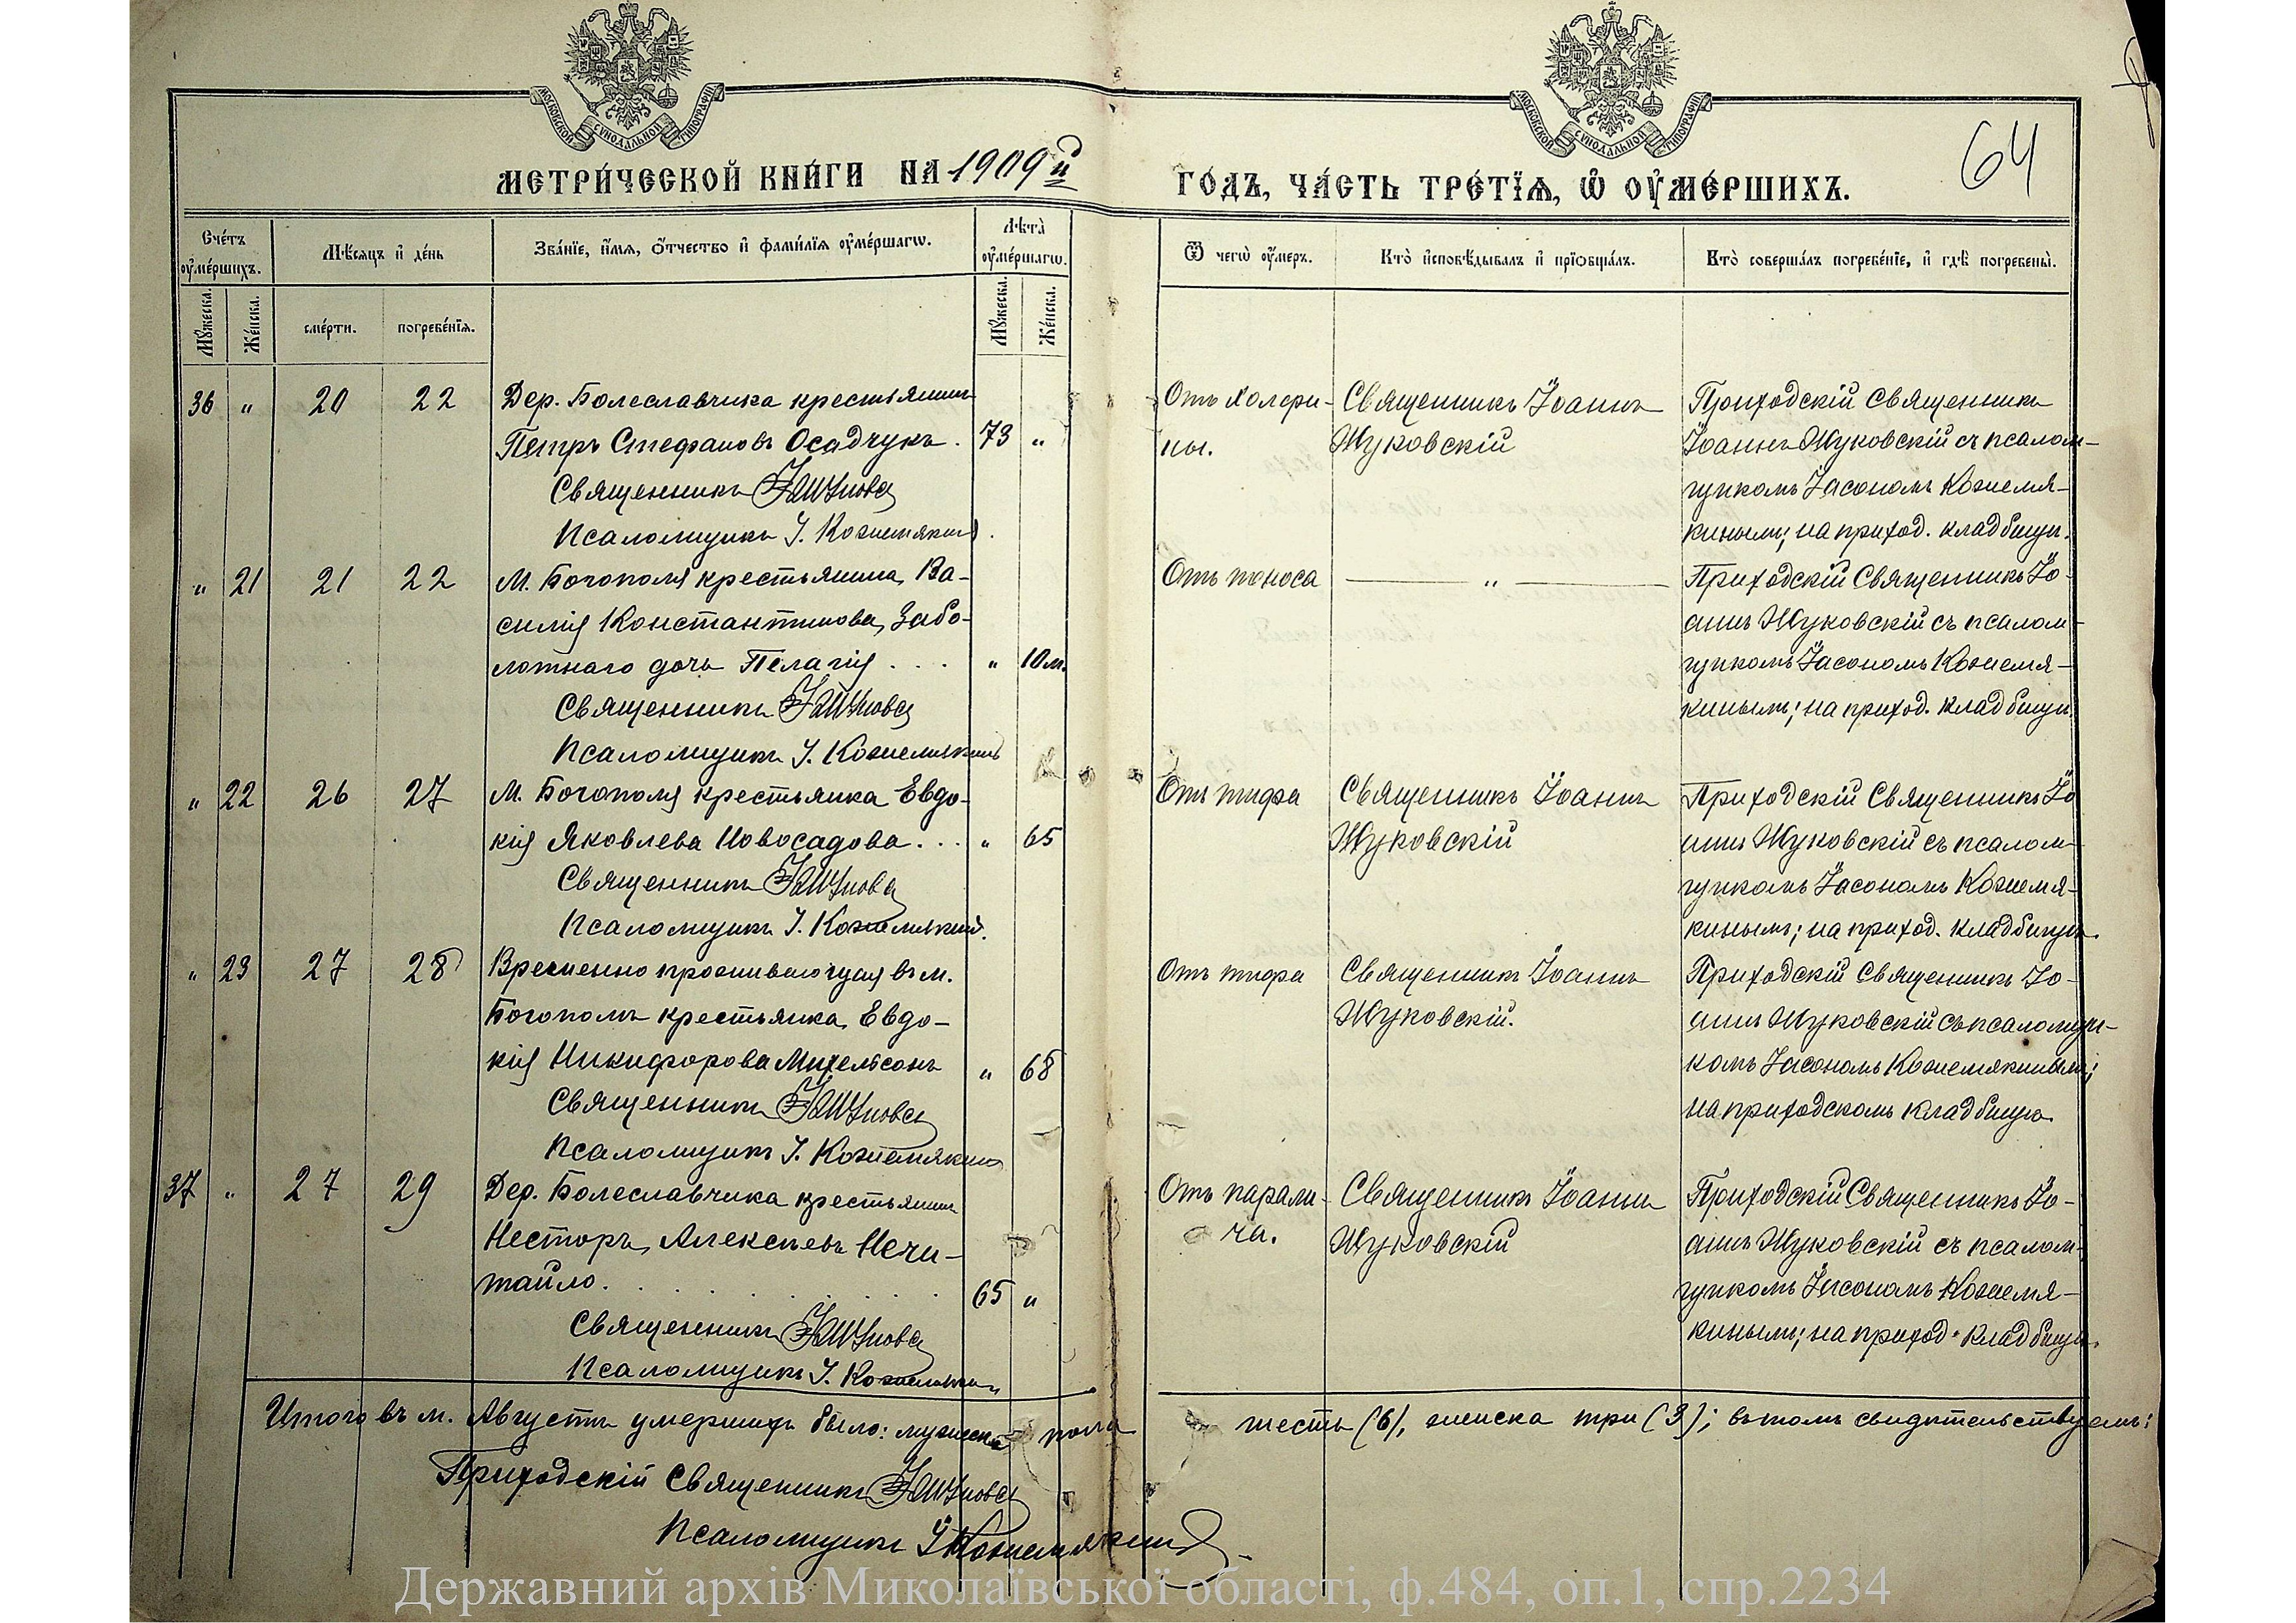 МОСКОВСКОЙ СѴНОДАЛЬНОЙ ТИПОГРАФІИ
МОСКОВСКОЙ СѴНОДАЛЬНОЙ ТИПОГРАФІИ
64
МЕТРИ́ЧЕСКОЙ КНИ́ГИ НА 1909й ГО́ДЪ, ЧА́СТЬ ТРЕ́ТЇѦ, Ѡ ОУ҆МЕ́РШИХЪ.
Сче́тъ оу҆ме́ршихъ.
Мꙋ́жеска.
Же́нска.
Мѣ́сяцъ и҆ де́нь
сме́рти.
погребе́нїѧ.
Зва́нїе, и҆́мѧ, ѻ҆́тчество и҆ фами́лїѧ оу҆ме́ршагѡ.
Лѣ́та оу҆ме́ршагѡ.
Мꙋ́жеска.
Же́нска.
Ѿ чегѡ̀ оу҆́меръ.
Кто̀ и҆сповѣ́дывалъ и҆ прїѡбща́лъ.
Кто̀ соверша́лъ погребе́нїе, и҆ гдѣ̀ погребены̀.
36 " 20 22
Дер. Болеславчика крестьянинъ
Петръ Стефановъ Осадчукъ. 73 "
Священникъ
Псаломщикъ І. Кожемякинъ.
Отъ холери-
ны.
Священникъ Іоаннъ
Жуковскій
Приходскій Священникъ
Іоаннъ Жуковскій съ псалом-
щикомъ Іасономъ Кожемя-
кинымъ; на приход. кладбищѣ.
" 21 21 22
М. Богополя крестьянина Ва-
силія Константинова Забо-
лотнаго дочь Пелагія . . . . " 10 м.
Священникъ
Псаломщикъ І. Кожемякинъ
Отъ поноса
— " —
Приходскій Священникъ Іо-
аннъ Жуковскій съ псалом-
щикомъ Іасономъ Кожемя-
кинымъ; на приход. кладбищѣ
" 22 26 27
М. Богополя крестьянка Евдо-
кія Яковлева Новосадова . . . " 65
Священникъ
Псаломщикъ І. Кожемякинъ.
Отъ тифа
Священникъ Іоаннъ
Жуковскій
Приходскій Священникъ Іо
аннъ Жуковскій съ псалом-
щикомъ Іасономъ Кожемя-
кинымъ; на приход. кладбищѣ.
" 23 27 28
Временно проживающая въ м.
Богополѣ крестьянка Евдо-
кія Никифорова Михельсонъ " 68
Священникъ
Псаломщикъ І. Кожемякинъ
Отъ тифа
Священникъ Іоаннъ
Жуковскій.
Приходскій Священникъ Іо-
аннъ Жуковскій съ псаломщи-
комъ Іасономъ Кожемякинымъ;
на приходскомъ кладбищѣ.
37 " 27 29
Дер. Болеславчика крестьянинъ
Несторъ Алексѣевъ Нечи-
тайло. . . . . . . . 65 "
Священникъ
Псаломщикъ І. Кожемякинъ
Отъ парали-
ча.
Священникъ Іоаннъ
Жуковскій
Приходскій Священникъ Іо-
аннъ Жуковскій съ псалом-
щикомъ Іасономъ Кожемя-
кинымъ; на приход. кладбищѣ.
Итого въ м. Августѣ умершихъ было: мужеска пола шесть (6), женска три (3); въ томъ свидѣтельствуемъ:
Приходскій Священникъ
Псаломщикъ І Кожемякинъ.
Державний архів Миколаївської області, ф.484, оп.1, спр.2234